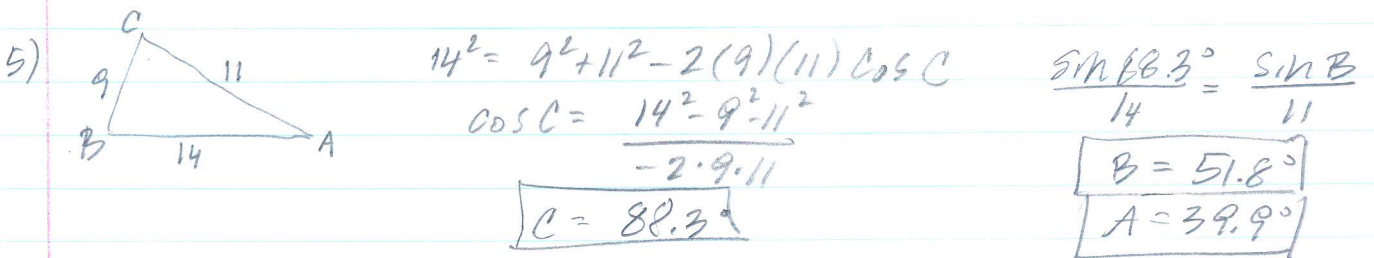 5)
C
9
11
B
14
A
14² = 9² + 11² - 2(9)(11) cos C
cos C = (14² - 9² - 11²) / (-2·9·11)
C = 88.3°
sin 88.3° / 14 = sin B / 11
B = 51.8°
A = 39.9°